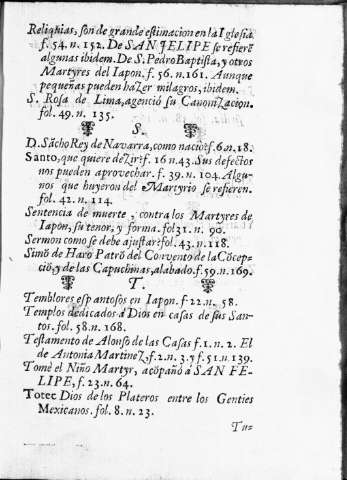 Reliquias, son de grande estimacion en la Iglesia
f. 54. n. 152. De SAN FELIPE se refierẽ
algunas ibidem. De S. Pedro Baptista, y otros
Martyres del Iapon. f. 56. n. 161. Aunque
pequeñas pueden hazer milagros, ibidem.
S. Rosa de Lima, agenció su Canonizacion.
fol. 49. n. 135.
S.
D. Sãcho Rey de Navarra, como nacio? f. 6. n. 18.
Santo, que quiere dezir? f. 16 n. 43. Sus defectos
nos pueden aprovechar. f. 39. n. 104. Algu-
nos que huyeron del Martyrio se refieren.
fol. 42. n. 114.
Sentencia de muerte, contra los Martyres de
Iapon, su tenor, y forma. fol 31. n. 90.
Sermon como se debe ajustar? fol. 43. n. 118.
Simõ de Haro Patrõ del Corvento de la Cõcep-
ciõ, y de las Capuchinas, alabado. f. 59. n. 169.
T.
Temblores espantosos en Iapon. f 22. n. 58.
Templos dedicados á Dios en casas de sus San-
tos. fol. 58. n. 168.
Testamento de Alonso de las Casas f. 1. n. 2. El
de Antonia Martinez, f. 2. n. 3. y f. 51. n. 139.
Tomè el Niño Martyr, acõpañò a SAN FE-
LIPE, f. 23. n. 64.
Totec Dios de los Plateros entre los Genties
Mexicanos. fol. 8. n. 23.
Tu-